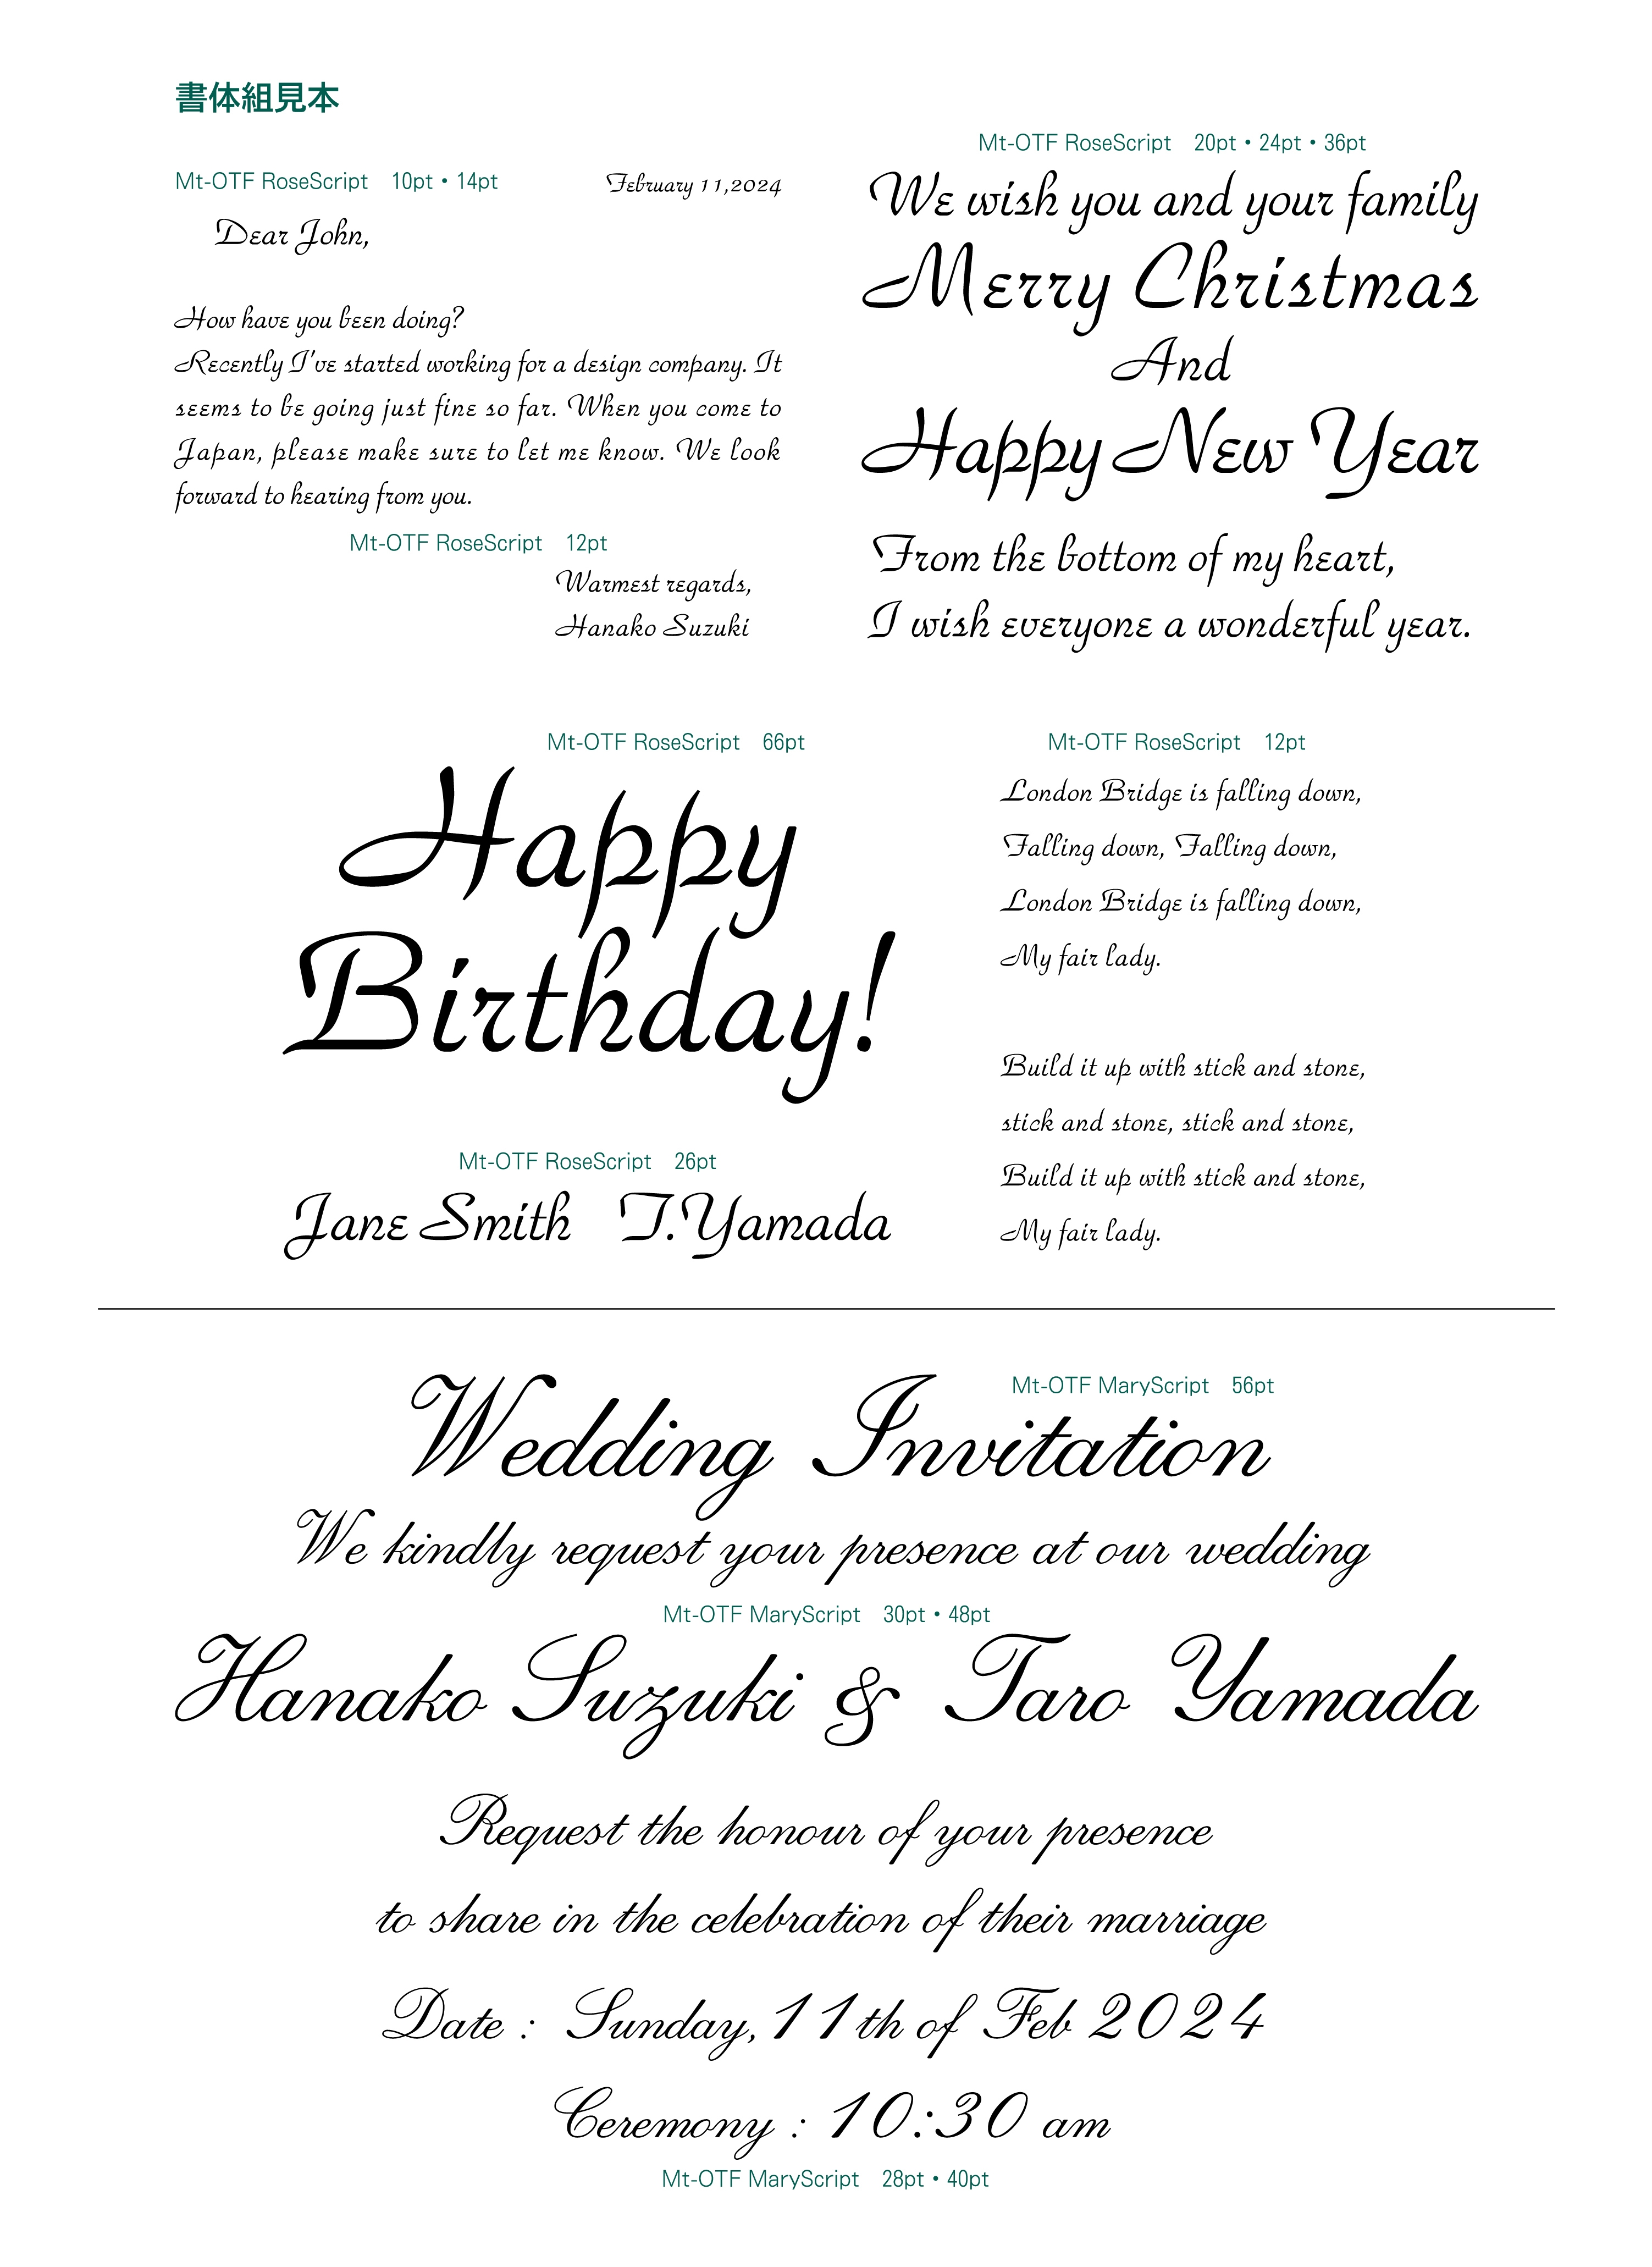 書体組見本
Mt-OTF RoseScript 10pt・14pt
February 11,2024
Dear John,
How have you been doing?
Recently I've started working for a design company. It
seems to be going just fine so far. When you come to
Japan, please make sure to let me know. We look
forward to hearing from you.
Mt-OTF RoseScript 12pt
Warmest regards,
Hanako Suzuki
Mt-OTF RoseScript 20pt・24pt・36pt
We wish you and your family
Merry Christmas
And
Happy New Year
From the bottom of my heart,
I wish everyone a wonderful year.
Mt-OTF RoseScript 66pt
Happy
Birthday!
Mt-OTF RoseScript 26pt
Jane Smith T.Yamada
Mt-OTF RoseScript 12pt
London Bridge is falling down,
Falling down, Falling down,
London Bridge is falling down,
My fair lady.
Build it up with stick and stone,
stick and stone, stick and stone,
Build it up with stick and stone,
My fair lady.
Mt-OTF MaryScript 56pt
Wedding Invitation
We kindly request your presence at our wedding
Mt-OTF MaryScript 30pt・48pt
Hanako Suzuki & Taro Yamada
Request the honour of your presence
to share in the celebration of their marriage
Date : Sunday,11th of Feb 2024
Ceremony : 10:30 am
Mt-OTF MaryScript 28pt・40pt